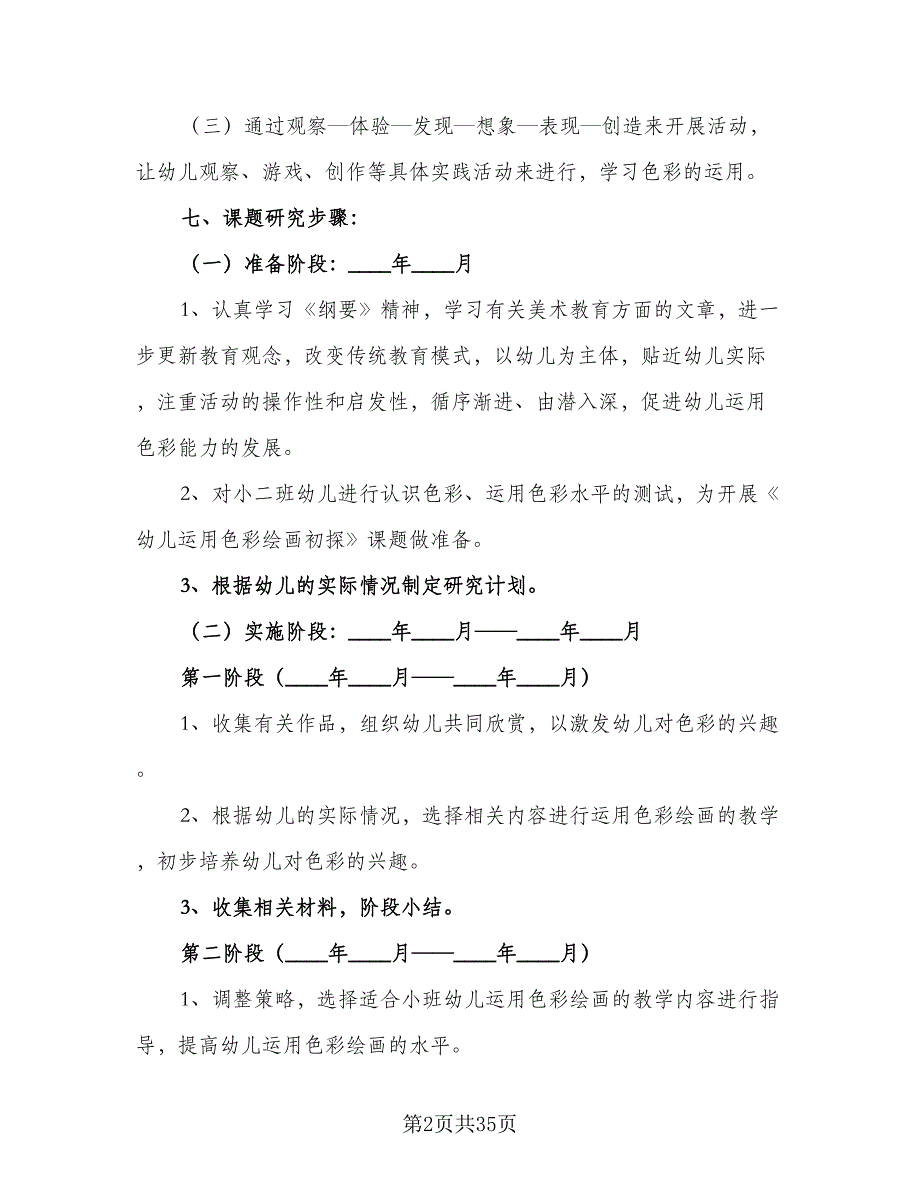 （三）通过观察—体验—发现—想象—表现—创造来开展活动，
让幼儿观察、游戏、创作等具体实践活动来进行，学习色彩的运用。
七、课题研究步骤：
（一）准备阶段：____年____月
1、认真学习《纲要》精神，学习有关美术教育方面的文章，进一
步更新教育观念，改变传统教育模式，以幼儿为主体，贴近幼儿实际
，注重活动的操作性和启发性，循序渐进、由潜入深，促进幼儿运用
色彩能力的发展。
2、对小二班幼儿进行认识色彩、运用色彩水平的测试，为开展《
幼儿运用色彩绘画初探》课题做准备。
3、根据幼儿的实际情况制定研究计划。
（二）实施阶段：____年____月——____年____月
第一阶段（____年____月——____年____月）
1、收集有关作品，组织幼儿共同欣赏，以激发幼儿对色彩的兴趣
。
2、根据幼儿的实际情况，选择相关内容进行运用色彩绘画的教学
，初步培养幼儿对色彩的兴趣。
3、收集相关材料，阶段小结。
第二阶段（____年____月——____年____月）
1、调整策略，选择适合小班幼儿运用色彩绘画的教学内容进行指
导，提高幼儿运用色彩绘画的水平。
第2页共35页